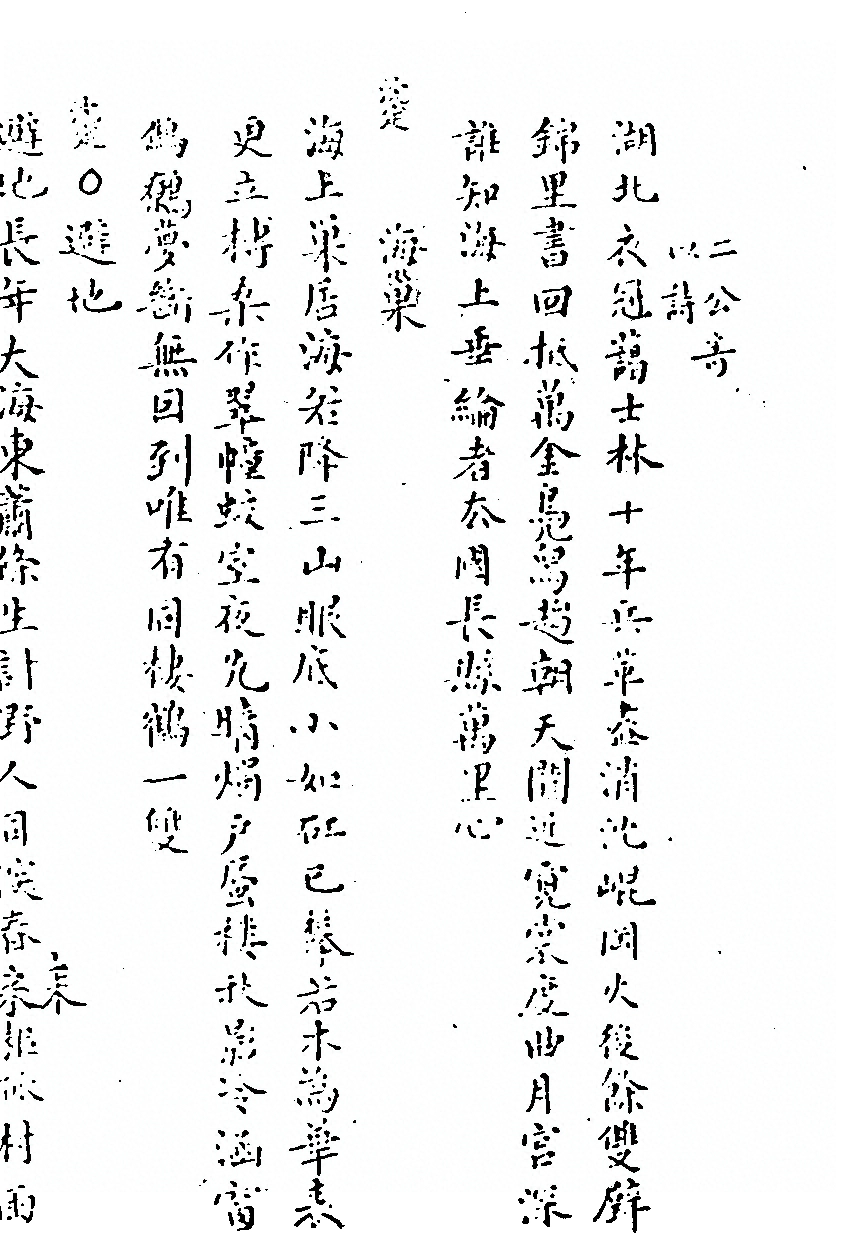 二公寄
以詩
湖北衣冠藹士林十年兵革盡消沈崐岡火後餘雙璧
錦里書回抵萬金鳧舄趍朝天闕近霓裳度曲月宮深
誰知海上垂綸者太國長縣萬里心
楚
海巢
海上巢居海若降三山眼底小如矼已攀若木為華表
更立榑桑作翠幢蛟室夜光晴燭戶蜃樓秋影冷涵窗
鴻鵠夢斷無回列唯有同棲鶴一雙
楚〇避地
避地長年大海東蕭條生計野人同溪春
村雨